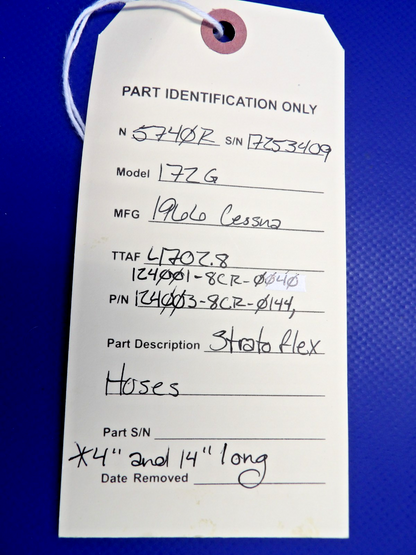 PART IDENTIFICATION ONLY
N 574ØR S/N 17253409
Model 172G
MFG 1966 Cessna
TTAF 4702.8
124ØØ1-8CR-ØØ4Ø
P/N 124ØØ3-8CR-Ø144,
Part Description Strato flex
Hoses
Part S/N
*4" and 14" long
Date Removed